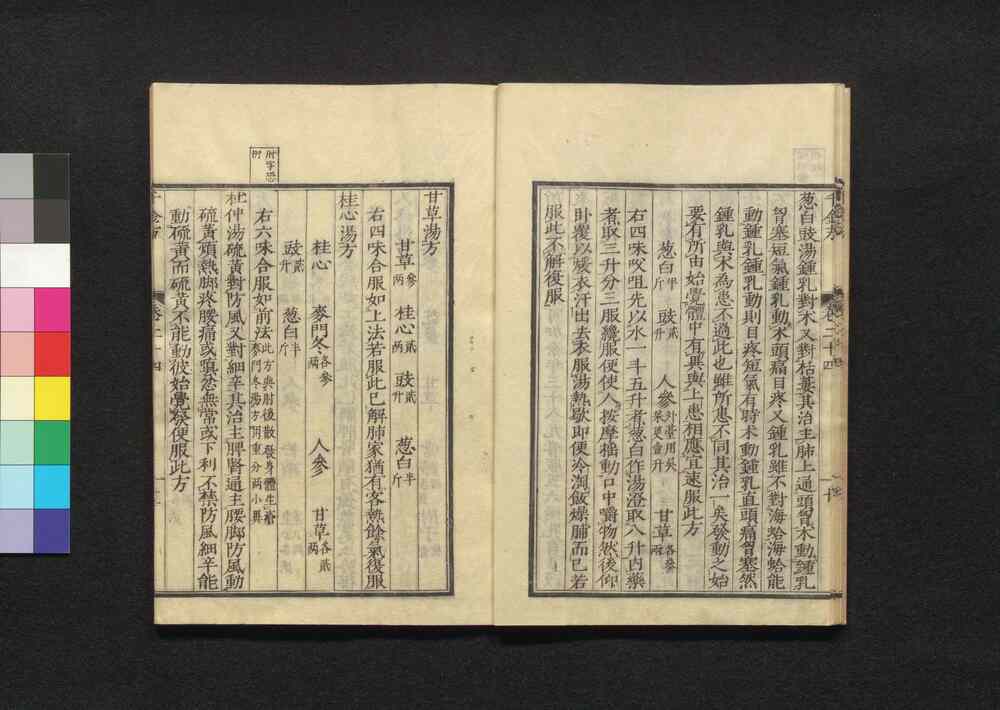 葱白豉湯鍾乳對朮又對栝蔞其治主肺上通頭胷朮動鍾乳
胷塞短氣鍾乳動朮頭痛目疼又鍾乳雖不對海蛤海蛤能
動鍾乳鍾乳動則目疼短氣有時朮動鍾乳直頭痛胷塞然
鍾乳與朮為患不過此也雖所患不同其治一矣發動之始
要有所由始覺體中有異與上患相應宜速服此方
葱白半斤 豉貳升 人參 甘草各參兩
右四味㕮咀先以水一斗五升煑葱白作湯澄取八升內藥
煑取三升分三服纔服便使人按摩搖動口中嚼物然後仰
臥覆以暖衣汗出去衣服湯熱歇即便冷淘飯燥脯而已若
服此不解復服
甘草湯方
甘草參兩 桂心貳兩 豉貳升 葱白半斤
右四味合服如上法若服此已解肺家猶有客熱餘氣復服
桂心湯方
桂心 麥門冬各參兩 人參 甘草各貳兩
豉貳升 葱白半斤
右六味合服如前法此方與肘後散發身體生瘡麥門冬湯方同重分兩小異
杜仲湯硫黃對防風又對細辛其治主脾腎通主腰脚防風動
硫黃煩熱脚疼腰痛或嗔忿無常或下利不禁防風細辛能
動硫黃而硫黃不能動彼始覺發便服此方